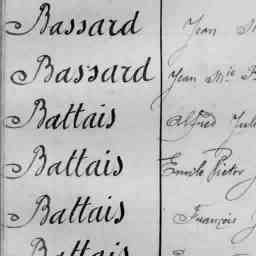 Bassard Jean
Bassard Jean Mie
Battais Alfred Jule
Battais Emile Victor
Battais François
Battais